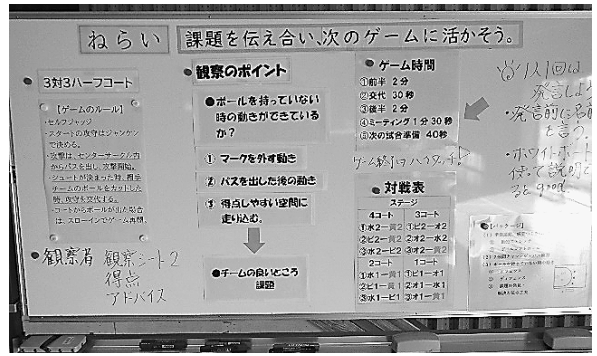 ねらい
課題を伝え合い、次のゲームに活かそう。
●3対3ハーフコート
【ゲームのルール】
・セルフジャッジ
・スタートの攻守はジャンケン
で決める。
・攻撃は、センターサークル内
からパスを出し、攻撃開始。
・シュートが決まった時、相手
チームのボールをカットした
時、攻守を交代する。
・コートからボールが出た場合
は、スローインでゲーム再開
●観察者 観察シート2
得点
アドバイス
●観察のポイント
●ボールを持っていない
時の動きができている
か?
① マークを外す動き
② パスを出した後の動き
③ 得点しやすい空間に
走り込む。
●チームの良いところ
課題
●ゲーム時間
①前半 2分
②交代 30秒
③後半 2分
④ミーティング1分30秒
⑤次の試合準備 40秒
ゲーム終了は ハイタッチ!
●対戦表
ステージ
4コート 3コート
①水2ー黄2 ①ピ2ーオ2
②ピ2ー黄2 ②オ2ー水2
③水2ーピ2 ③オ2ー黄2
2コート 1コート
①水1ー黄1 ①ピ1ーオ1
②ピ1ー黄1 ②オ1ー水1
③水1ーピ1 ③オ1ー黄1
1人1回は
発言しよ
・発言前に名前
を言う。
・ホワイトボード
使って説明
るとgood